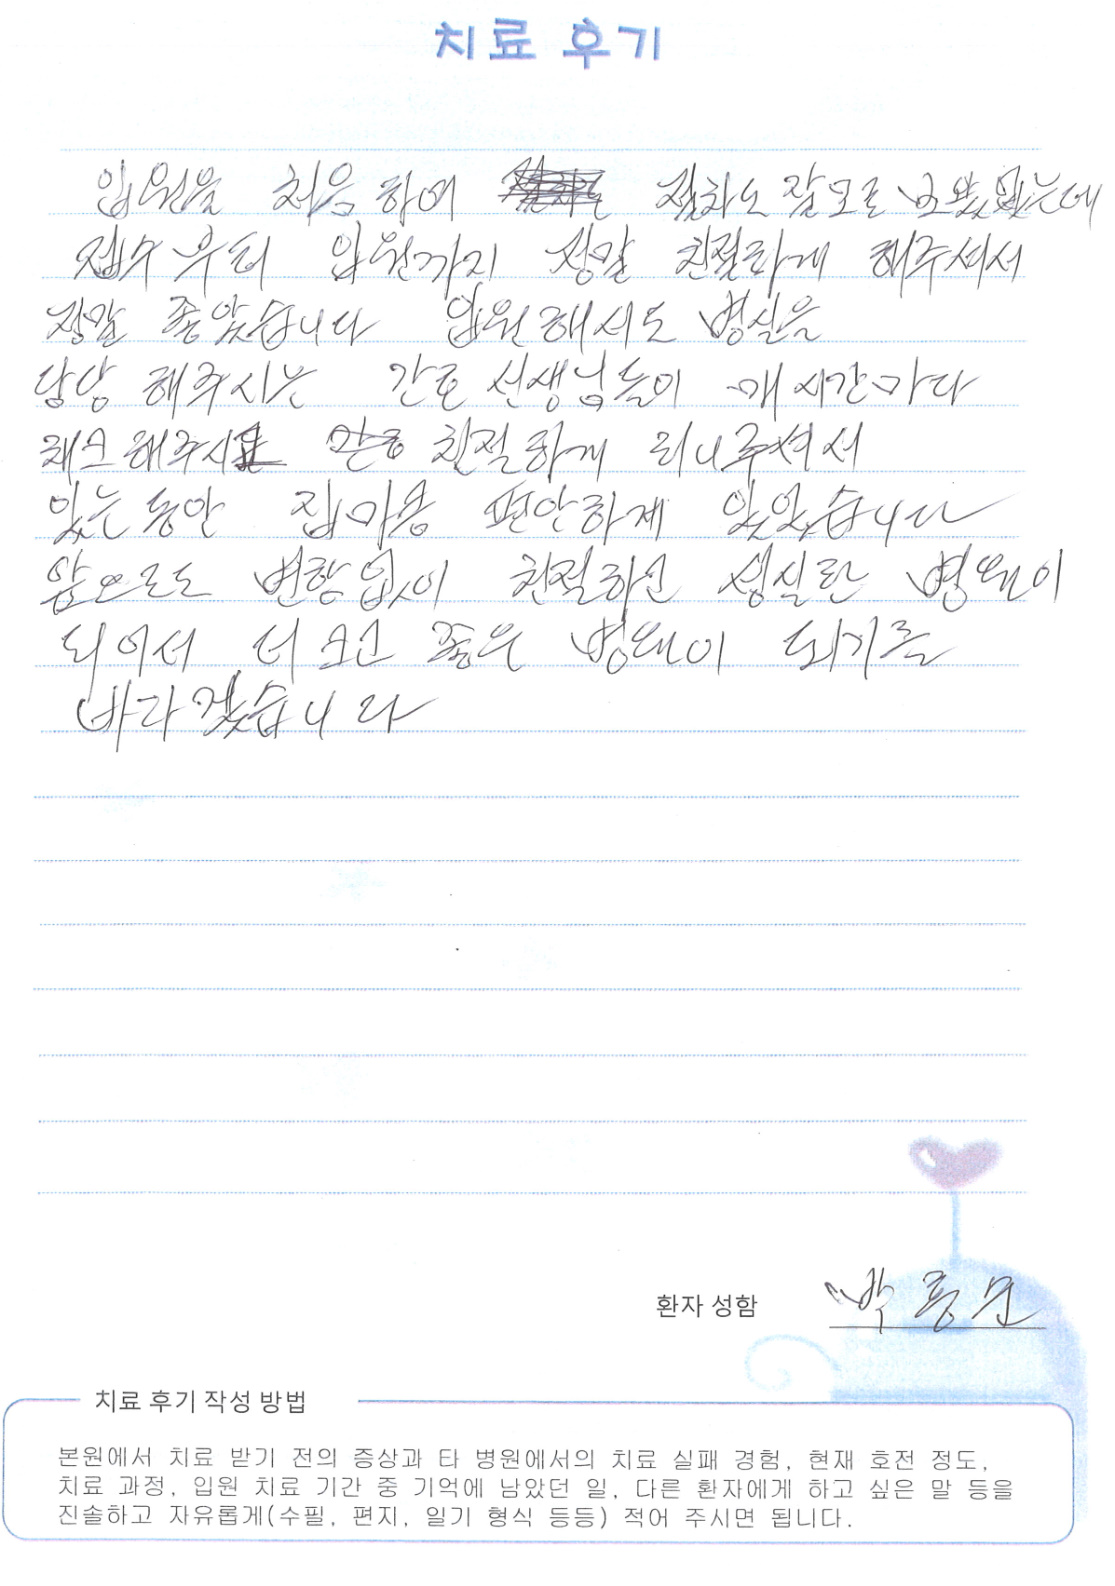 치료 후기
입원을 처음 하여 절차도 잘 모르
접수부터 입원까지 정말 친절하게 해주셔서
정말 좋았습니다 입원해서도 병실을
담당 해주시는 간호 선생님들이 매 시간마다
채크 해주시고 친절하게 해주셔서
있는 동안 집 마냥 편안하게 있었습니다
앞으로도 변함없이 친절하고 성실한 병원이
되어서 더 크고 좋은 병원이 되기를
바라겠습니다
환자 성함
치료 후기 작성 방법
본원에서 치료 받기 전의 증상과 타 병원에서의 치료 실패 경험, 현재 호전 정도,
치료 과정, 입원 치료 기간 중 기억에 남았던 일, 다른 환자에게 하고 싶은 말 등을
진솔하고 자유롭게(수필, 편지, 일기 형식 등등) 적어 주시면 됩니다.